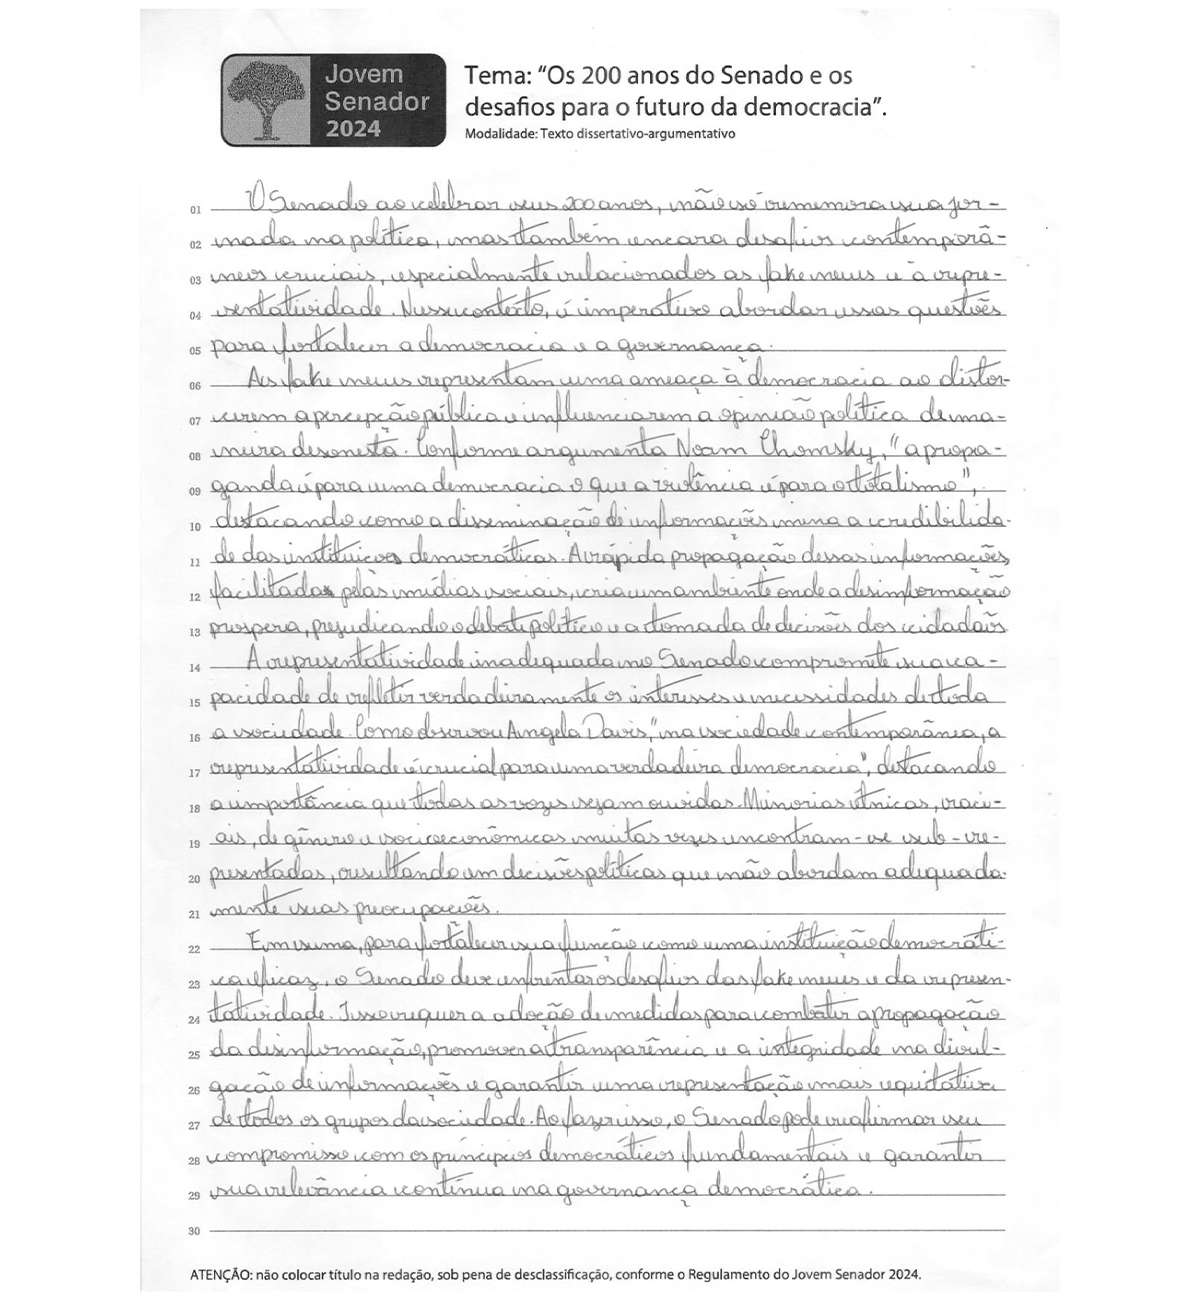 Jovem
Senador
2024
Tema: “Os 200 anos do Senado e os
desafios para o futuro da democracia”.
Modalidade: Texto dissertativo-argumentativo
01 O Senado ao celebrar seus 200 anos, não só rememora sua jor-
02 nada na política, mas também encara desafios contemporâ-
03 neos cruciais, especialmente relacionados as fake news e à repre-
04 sentatividade. Nesse contexto, é imperativo abordar essas questões
05 para fortalecer a democracia e a governança.
06 As fake news representam uma ameaça à democracia ao distor-
07 cerem a percepção pública e influenciarem a opinião política de ma-
08 neira desonesta. Conforme argumenta Noam Chomsky, “a propa-
09 ganda é para uma democracia o que a violência é para o totalismo”,
10 destacando como a disseminação de informações mina a credibilida-
11 de das instituições democráticas. A rápida propagação dessas informações,
12 facilitadas pelas mídias sociais, cria um ambiente onde a desinformação
13 prospera, prejudicando o debate político e a tomada de decisões dos cidadãos
14 A representatividade inadequada no Senado compromete sua ca-
15 pacidade de refletir verdadeiramente os interesses e necessidades de toda
16 a sociedade. Como observou Angela Davis, “na sociedade contemporânea, a
17 representatividade é crucial para uma verdadeira democracia”, destacando
18 a importância que todas as vozes sejam ouvidas. Minorias étnicas, raci-
19 ais, de gênero e socioeconômicas muitas vezes encontram-se sub-re-
20 presentadas, resultando em decisões políticas que não abordam adequada-
21 mente suas preocupações.
22 Em suma, para fortalecer sua função como uma instituição democráti-
23 ca eficaz, o Senado deve enfrentar os desafios das fake news e da represen-
24 tatividade. Isso requer a adoção de medidas para combater a propagação
25 da desinformação, promover a transparência e a integridade na divul-
26 gação de informações e garantir uma representação mais equitativa
27 de todos os grupos da sociedade. Ao fazer isso, o Senado pode reafirmar seu
28 compromisso com os princípios democráticos fundamentais e garantir
29 sua relevância contínua na governança democrática.
30
ATENÇÃO: não colocar título na redação, sob pena de desclassificação, conforme o Regulamento do Jovem Senador 2024.